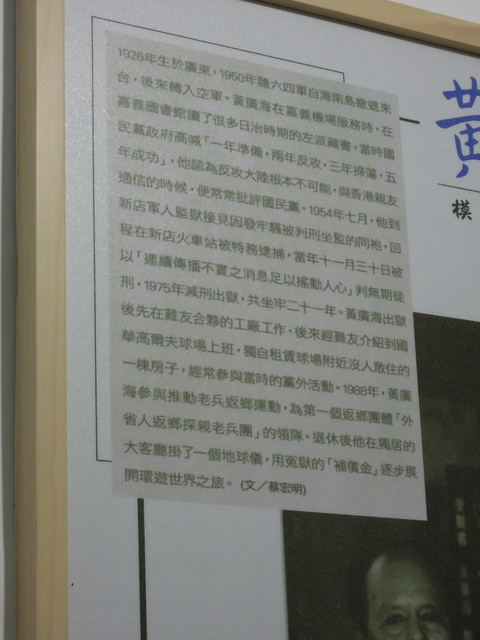 1926年生於廣東，1950年隨六四軍自海南島撤退來
台，後來轉入空軍。黃廣海在嘉義機場服務時，在
嘉義圖書館讀了很多日治時期的左派藏書，當時國
民黨政府高喊「一年準備，兩年反攻，三年掃蕩，五
年成功」，他認為反攻大陸根本不可能，與香港親友
通信的時候，便常常批評國民黨。1954年七月，他到
新店軍人監獄接見因發牢騷被判刑坐監的同袍，回
程在新店火車站被特務逮捕，當年十一月三十日被
以「連續傳播不實之消息足以搖動人心」判無期徒
刑，1975年減刑出獄，共坐牢二十一年。黃廣海出獄
後先在難友合夥的工廠工作，後來經難友介紹到國
華高爾夫球場上班，獨自租賃球場附近沒人敢住的
一棟房子，經常參與當時的黨外活動。1988年，黃廣
海參與推動老兵返鄉運動，為第一個返鄉團體「外
省人返鄉探親老兵團」的領隊。退休後他在獨居的
大客廳掛了一個地球儀，用冤獄的「補償金」逐步展
開環遊世界之旅。(文／蔡宏明)
黃
模